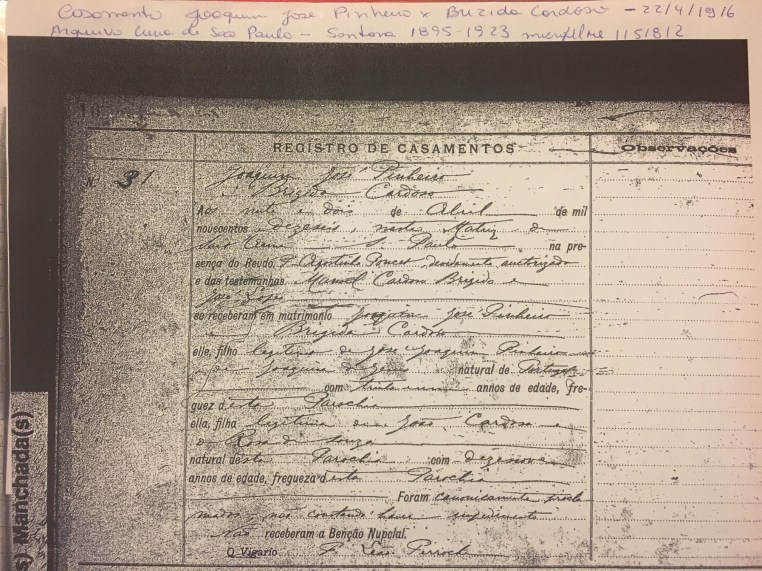 Casamento Joaquim José Pinheiro x Brizida Cardoso - 22/4/1916
Arquivo Curia de São Paulo - Santana 1895-1923 microfilme 1151812
REGISTRO DE CASAMENTOS
Observações
N. 31
Joaquim José Pinheiro
e Brizida Cardoso
Ao vinte e dois de Abril de mil
novecentos e dezeseis, nesta Matriz de
S. Paulo na pre-
sença do Revdo. P. Apostinho Poncet, devidamente auctorizado
e das testemunhas Manoel Cardoso Brigido e
José Lopes
se receberam em matrimonio Joaquim José Pinheiro
e Brizida Cardoso
elle, filho legitimo de José Joaquim Pinheiro
e de Joaquina de natural de Portugal
com trinta e um annos de edade, fre-
guez desta Parochia
ella, filha legitima de João Cardoso e
de Rosa de Souza
natural desta Parochia com dezenove
annos de edade, fregueza desta Parochia
Foram canonicamente procla
mados, não constando haver impedimento
Não receberam a Benção Nupcial.
O Vigario P. Leão Perroche
s) Manchada(s)